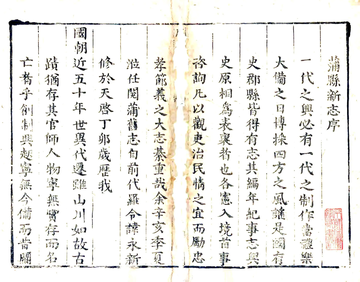 蒲縣新志序
一代之興必有一代之制作當禮樂
大備之日博採四方之風謠是國有
史郡縣皆得有志其編年紀事志與
史原相為表裏者也各憲入境首事
咨詢凡以觀吏治民情之宜而勵忠
孝節義之大志綦重哉余辛亥季夏
涖任閱蒲舊志自前代羅令諱永新
修於天啓丁卯歲歷我
國朝近五十年世異代遷雖山川如故古
蹟猶存其官師人物寧無實存而名
亡者乎創制興趨寧無今備而昔闕